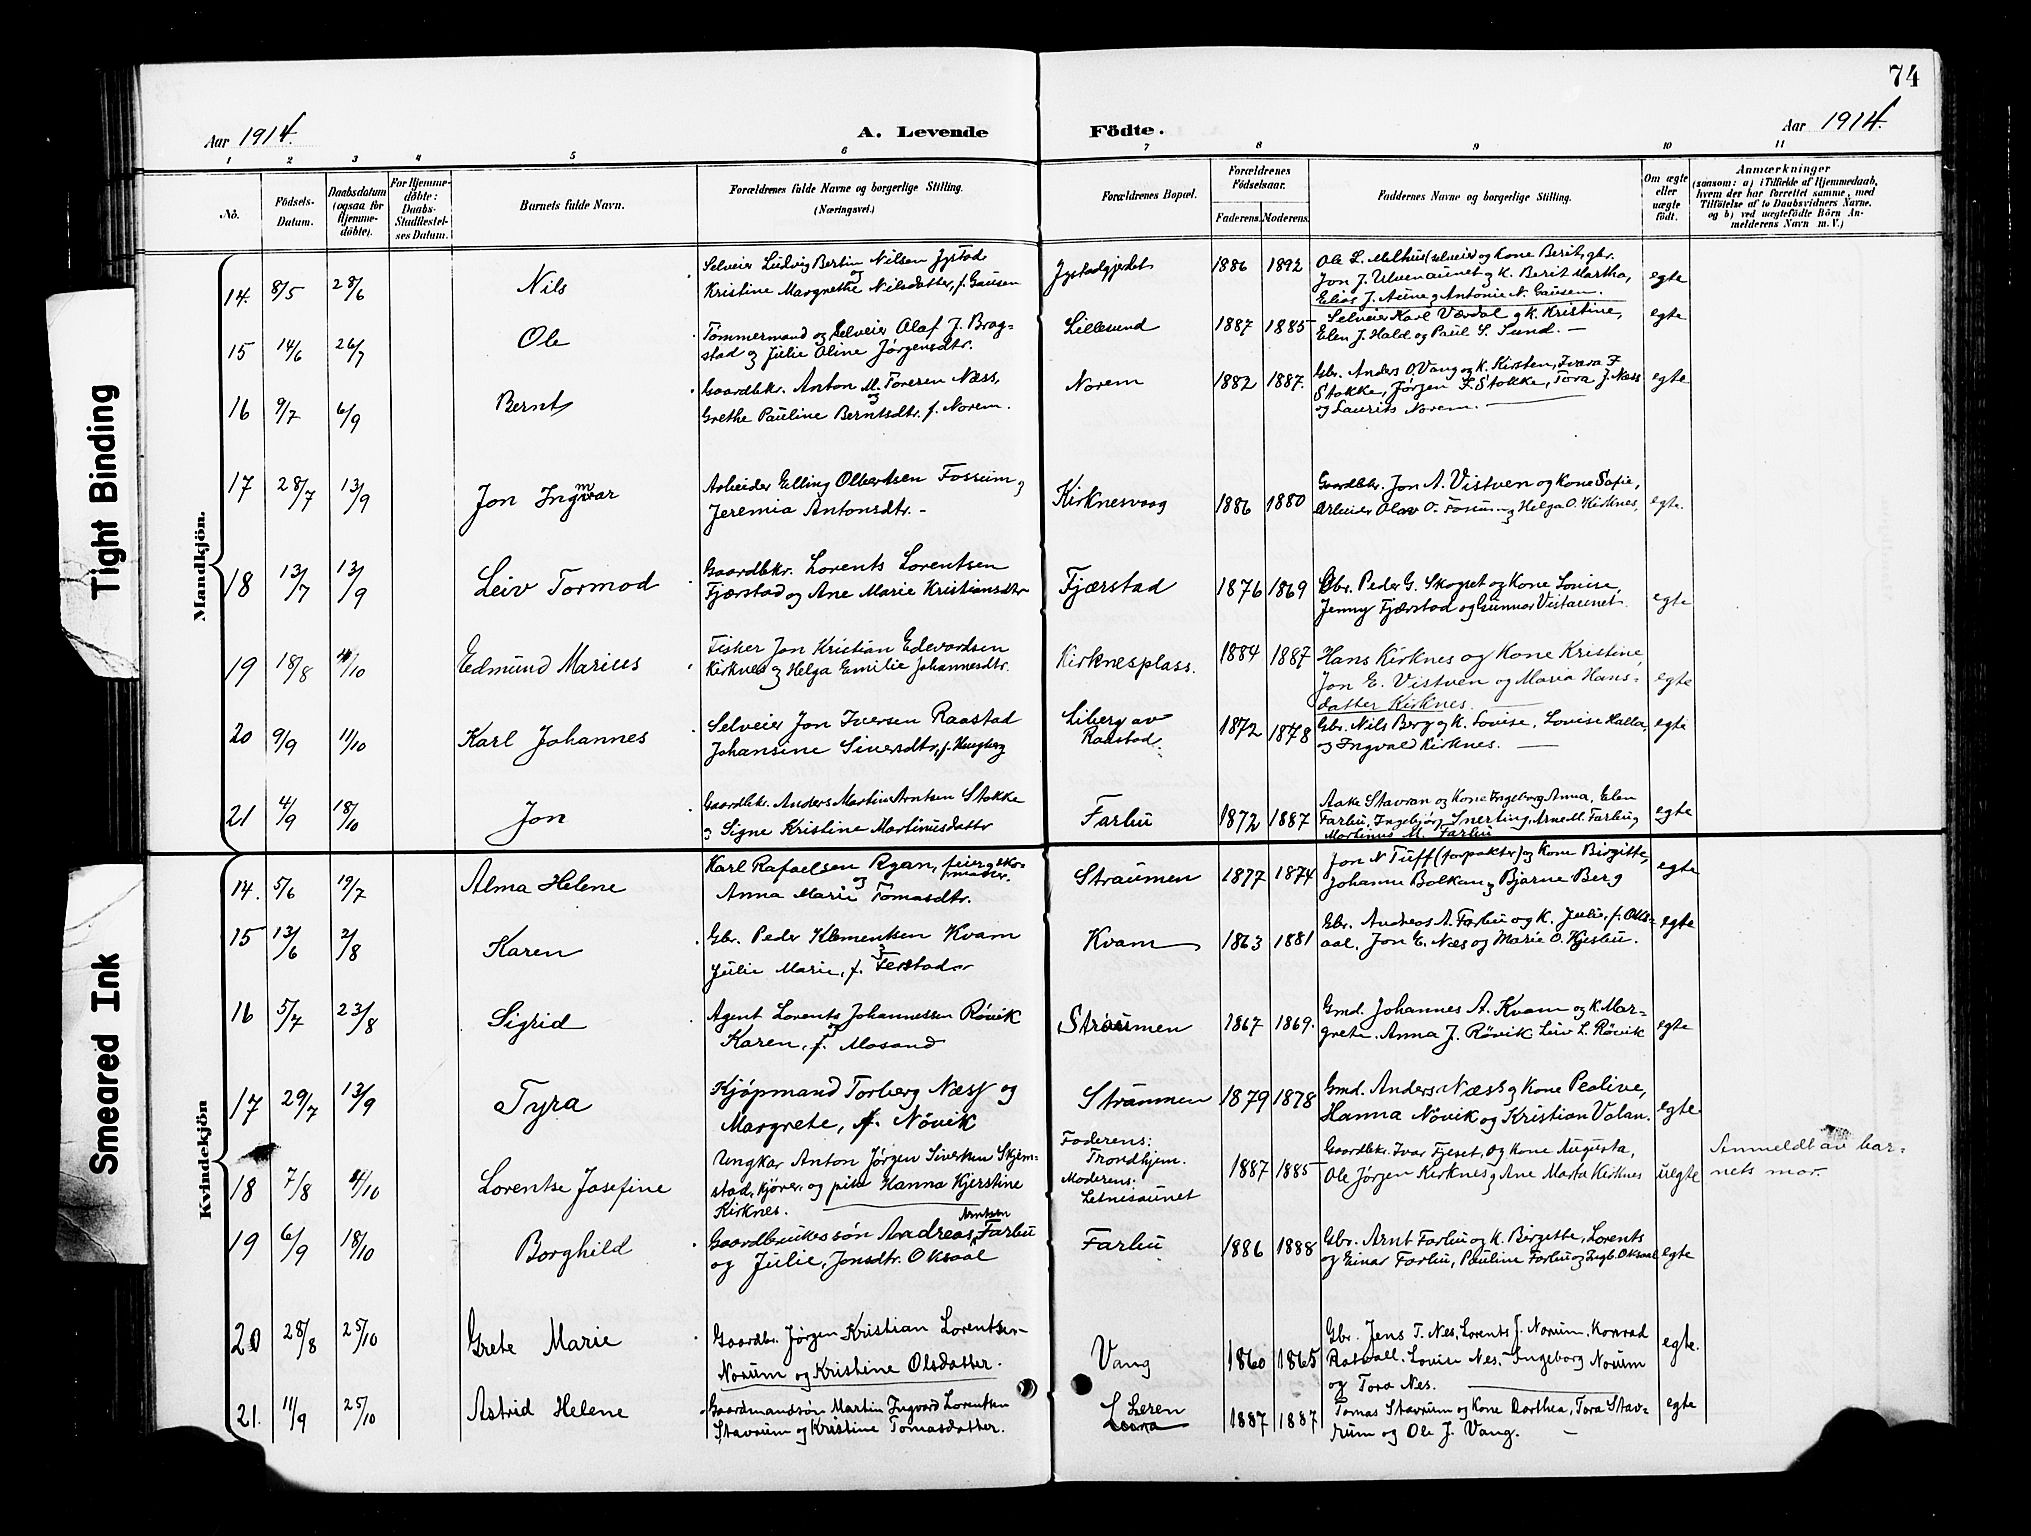 74
Aar 1914. A. Levende Födte. Aar 1914.
1 2 3 4 5 6 7 8 9 10 11
No.
Födsels-
Datum.
Daabsdatum
(ogsaa for
Hjemme-
döbte).
For Hjemme-
döbte:
Daabs-
Stadfæstel-
ses Datum.
Barnets fulde Navn.
Forældrenes fulde Navne og borgerlige Stilling.
(Næringsvei.)
Forældrenes Bopæl.
Forældrenes
Födselsaar.
Faderens. Moderens.
Faddernes Navne og borgerlige Stilling.
Om ægte
eller
uægte
födt.
Anmærkninger
(saasom: a) i Tilfælde af Hjemmedaab,
hvem der har forrettet samme, med
Tilföielse af to Daabsvidners Navne,
og b) ved uægtefödte Börn An-
melderens Navn m. V.)
Tight Binding
Smeared Ink
Mandkjön.
14. 8/5 28/6 Nils
Selveier Ludvig Bertin Nilsen Jystad
og
Kristine Margrethe Nilsdatter, f. Gausen
Jystadgjerdet 1886 1892
Ole L. Melhus (selveier) og Kone Berit, gbr.
Jon J. Ulvenaunet og K. Berit Martha,
Elias J. Aune og Antonie N. Gausen.
egte
15 14/6 26/7 Ole
Tømmermand og Selveier Olaf J. Brag-
stad og Julie Oline Jørgensdtr.
Lillesund 1887 1885
Selveier Karl Værdal og K. Kristine,
Elen J. Hald og Paul S. Sund. —
egte
16 9/7 6/9 Bernt
Gaardbkr. Anton M. Foresen Næss,
og
Grethe Pauline Berntsdtr. f. Norem.
Norem 1882 1887.
Gbr. Anders O. Vang og K. Kirsten, Ivara F.
Stokke, Jørgen F. Stokke, Tora J. Næss
og Laurits Norem.
egte
17 28/7 13/9 Jon Ingmar
Arbeider Elling Olbertsen Fossum og
Jeremia Antonsdtr. -
Kirknesvaag 1886 1880
Gaardbkr. Jon A. Vistven og Kone Sofie,
Arbeider Olav O. Fossum og Helga O. Kirknes,
egte.
18 13/7 13/9 Leiv Tormod
Gaardbkr. Lorents Lorentsen
Fjærstad og Ane Marie Kristiansdtr
Fjærstad 1876 1869
Gbr. Peder G. Skogset og Kone Lovise,
Jenny Fjærstad og Gunnar Vistaunet.
egte
19 18/8 4/10 Edmund Marius
Fisker Jon Kristian Edevardsen
Kirknes og Helga Emilie Johannesdtr.
Kirknesplass. 1884 1887
Hans Kirknes og Kone Kristine,
Jon E. Vistven og Maria Hans-
datter Kirknes.
egte
20 9/9 11/10 Karl Johannes
Selveier Jon Iversen Raastad
Johansine Siversdtr, f. Haugberg
Liberg av
Raastad. 1872 1878
Gbr. Nils Berg og K. Lovise, Lovise Halla,
og Ingvald Kirknes. —
egte
21 4/9 18/10 Jon
Gaardbkr. Anders Martin Arntsen Stokke
og Signe Kristine Martinusdatter
Farbu 1872 1887
Aake Stavran og Kone Ingeborg Anna, Elen
Farbu, Ingebjørg Snerting, Arne M. Farbu og
Martinus M. Farbu
egte
Kvindekjön
14. 5/6 19/7 Alma Helene
Karl Rafaelsen Ryan, feier og sko-
og maker.
Anna Marie Tomasdtr.
Straumen 1877 1874
Jon N. Tuff (forpakter) og Kone Birgitte,
Johanne Bolkan og Bjarne Berg
egte
15 13/6 2/8 Karen
Gbr. Peder Klementsen Kvam
og
Julie Marie, f. Ferstad
Kvam 1863 1881
Gbr. Andreas A. Farbu og K. Julie, f. Oks-
aal. Jon E. Næs og Marie O. Hjesbu.
egte
16 5/7 23/8 Sigrid
Agent Lorents Johannessen Røvik
og
Karen, f. Mosand
Straumen 1867 1869.
Gmd. Johannes A. Kvam og K. Mar-
grete. Anna J. Røvik Leiv L. Røvik
egte
17 29/7 13/9 Tyra
Kjøpmand Torberg Næss og
Margrete, f. Nøvik
Straumen 1879 1878
Gmd. Anders Næss og Kone Peolive,
Hanna Nøvik og Kristian Valan.
egte
18 7/8 4/10 Lorentse Josefine
Ungkar Anton Jørgen Sivertsen Skjem-
stad, kjører, og pike Hanna Kjerstine
Kirknes.
Faderens:
Trondhjem.
Moderens:
Letnisaunet
1887 1885
Gaardbkr. Ivar Fjeset, og Kone Augusta,
Ole Jørgen Kirknes og Ane Marta Kirknes
uegte
Anmeldt av bar-
nets mor.
19 6/9 18/10 Borghild
Arntsen
Gaardbrukessøn Andreas Farbu
og Julie, Jonsdtr. Oksaal
Farbu 1886 1888
Gbr. Arnt Farbu og K. Birgitte, Lorents
og Einar Farbu, Pauline Farbu og Ingb. Oksaal
egte
20 28/8 25/10 Grete Marie
Gaardbr. Jørgen Kristian Lorentsen
Norum og Kristine Olsdatter.
Vang 1860 1865
Gbr. Jens T. Nes, Lorents J. Norum, Konrad
Ratvall. Lovise Nes. Ingeborg Norum
og Tora Nes.
egte.
21. 11/9 25/10 Astrid Helene
Gaardmandsøn Martin Ingvard Lorentsen
Stavrum og Kristine Tomasdatter.
Leren
1887 1887
Tomas Stavrum og Kone Dorthea, Tora Stav-
rum og Ole J. Vang. —
egte